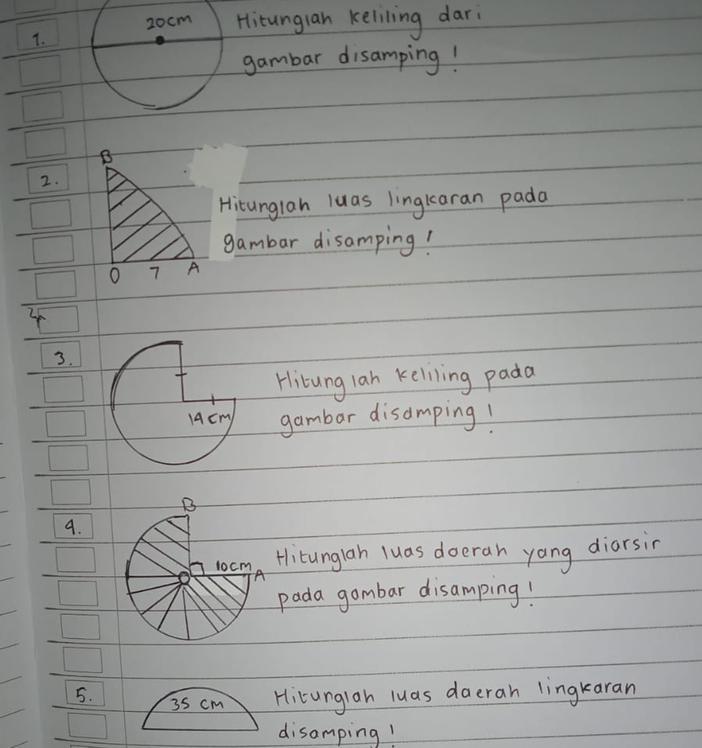 20cm
1. Hitunglah keliling dari
gambar disamping!
B
2. Hitunglah luas lingkaran pada
gambar disamping!
O 7 A
4
3. Hitunglah keliling pada
14cm gambar disamping!
B
4. 10cm A Hitunglah luas daerah yang diarsir
O pada gambar disamping!
5. 35 cm Hitunglah luas daerah lingkaran
disamping!